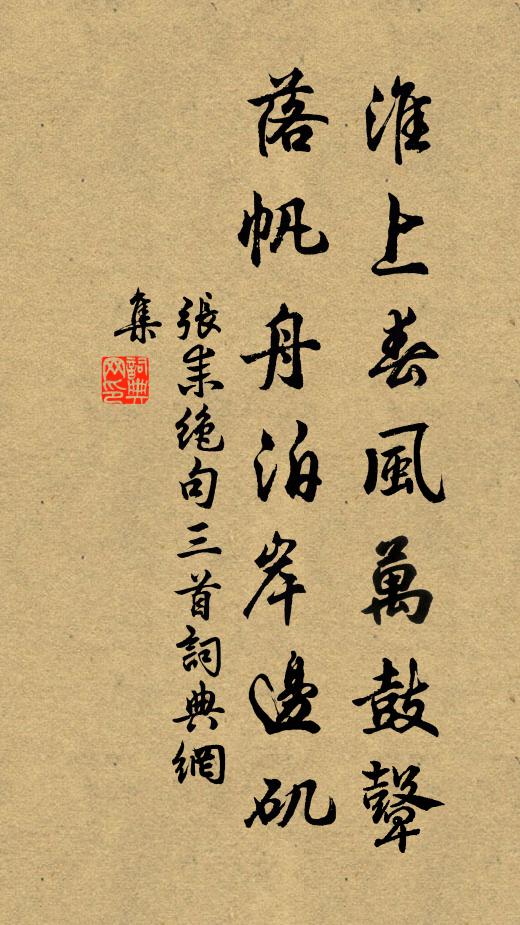 淮上春風萬鼓聲
落帆舟泊岸邊磯
張耒絕句三首詞典網
集
詞典網印